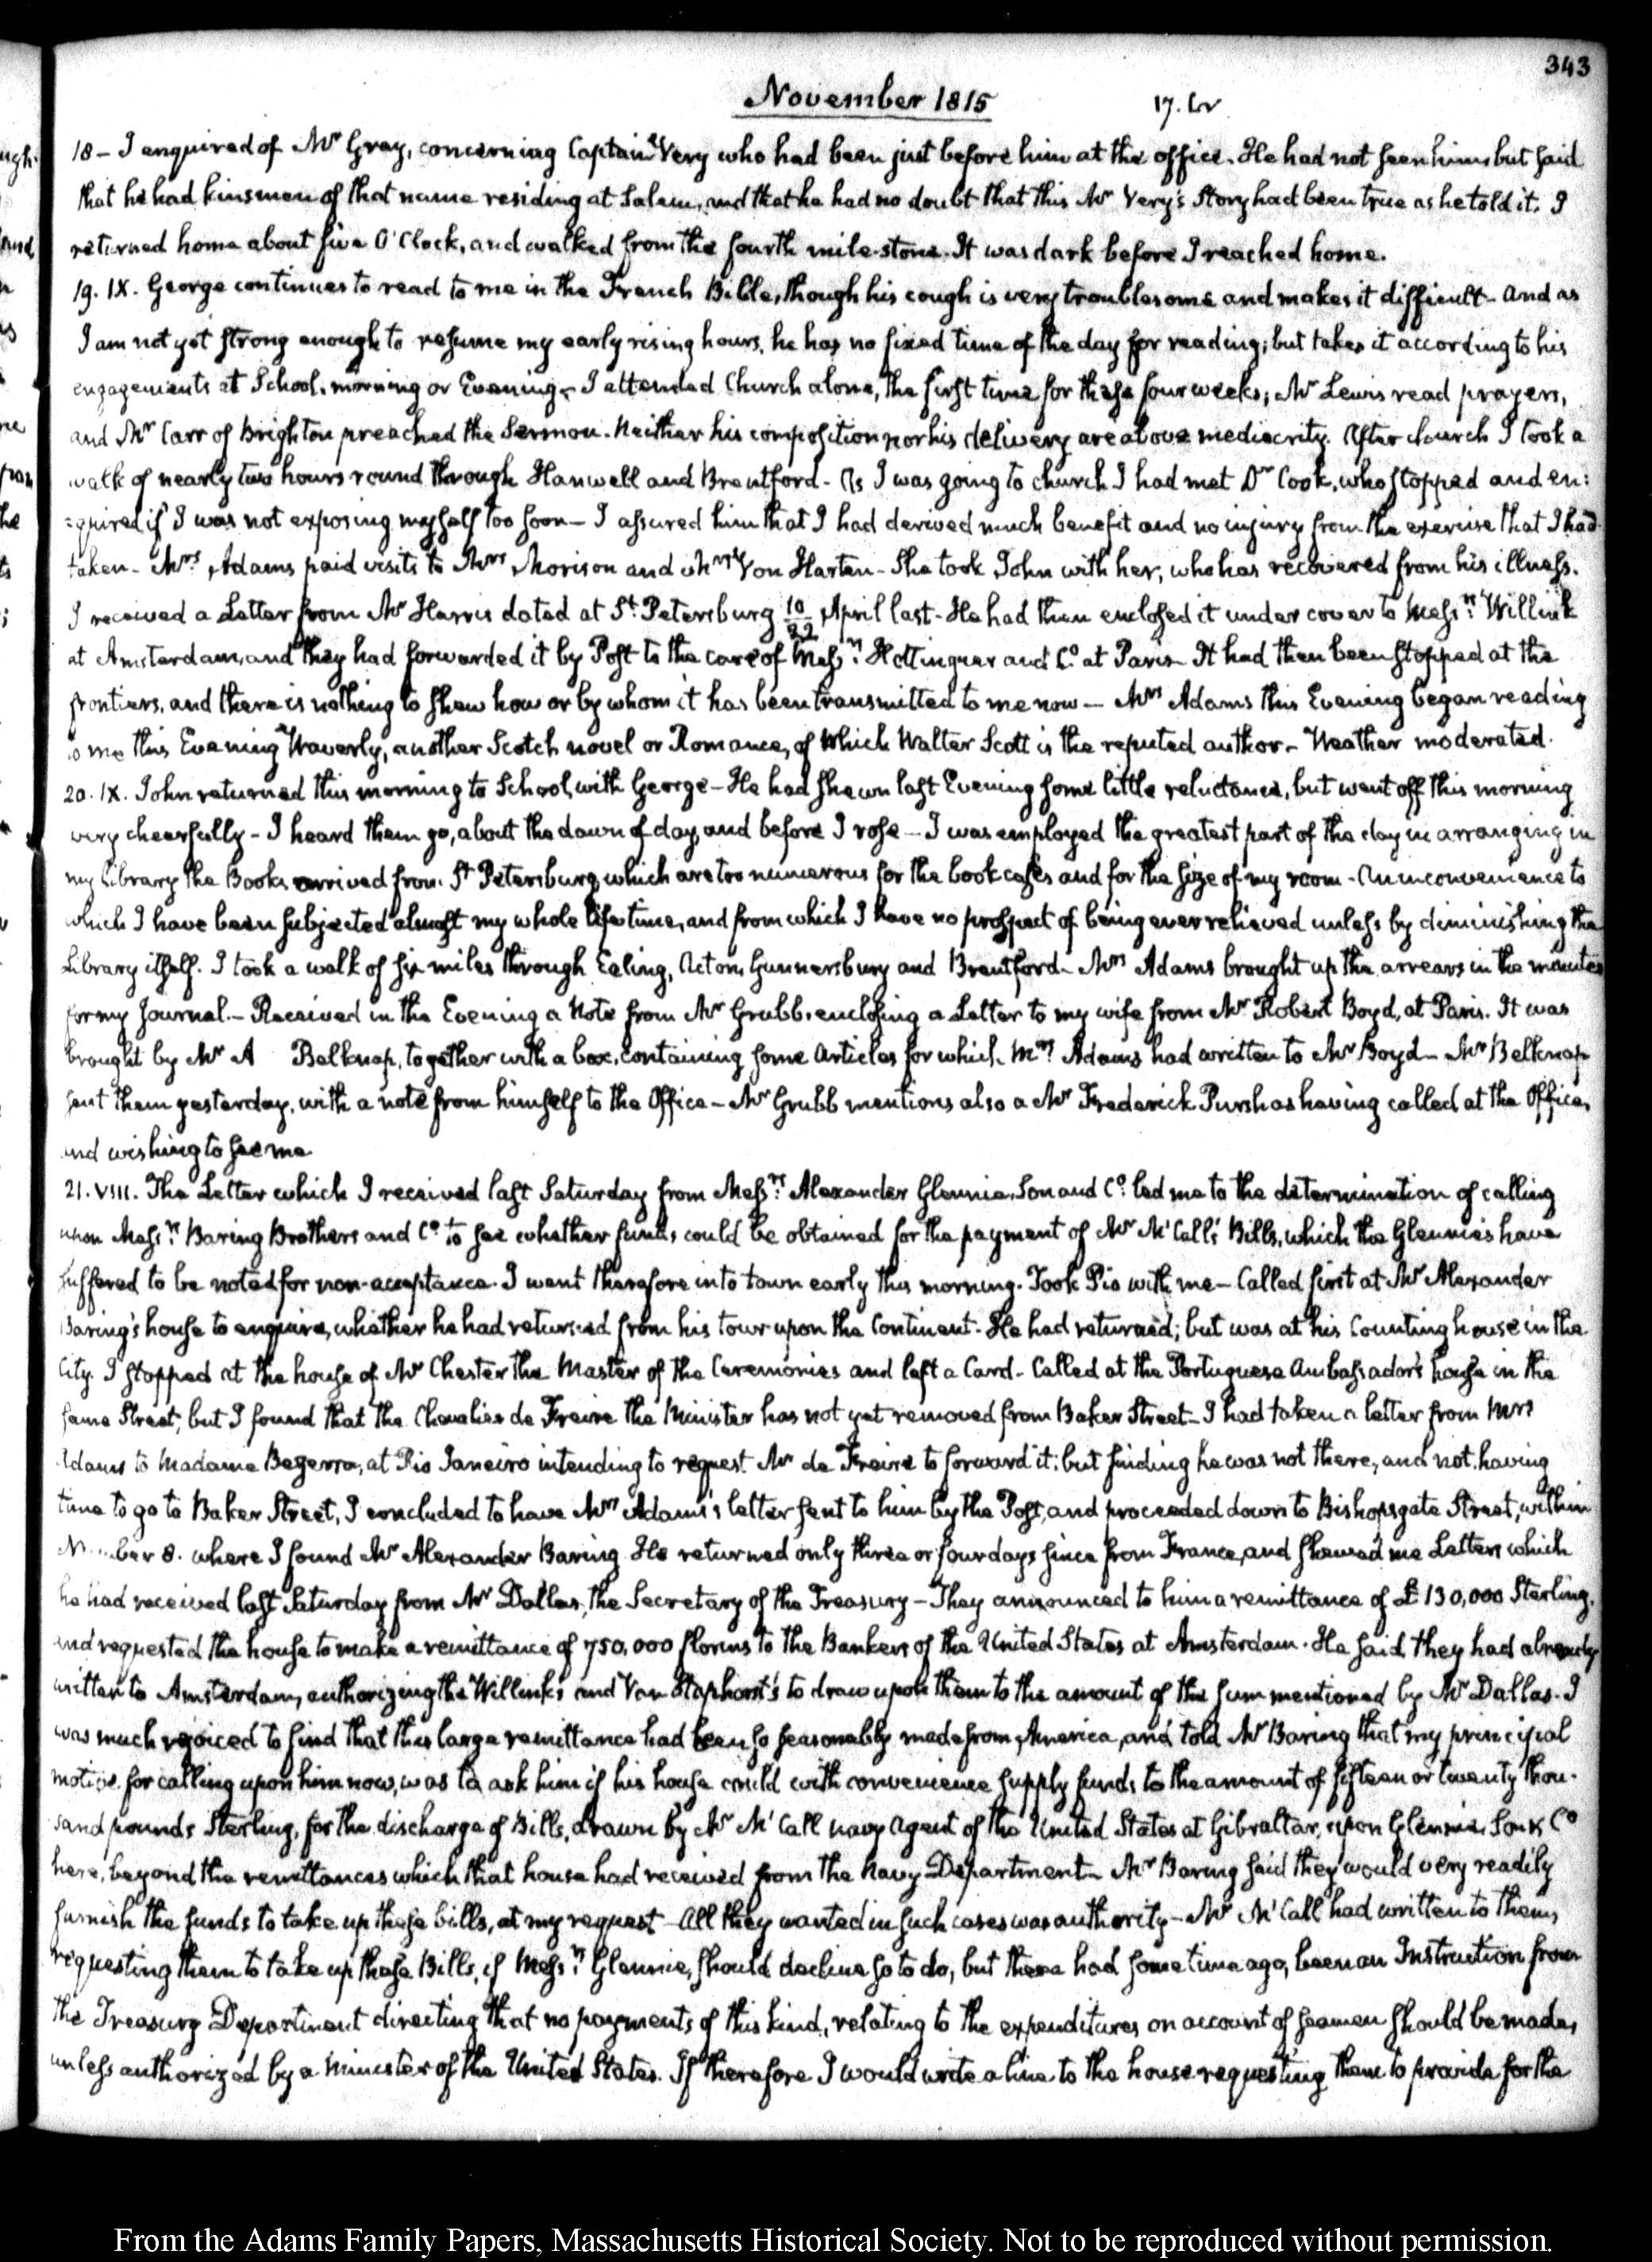 343
November 1815 17. IV
18 – I enquired of Mr Gray, concerning Captain Very who had been just before him at the office. He had not seen him but said
that he had kinsmen of that name residing at Salem, and that he had no doubt that this Mr Very's Story had been true as he told it. I
returned home about five O'Clock, and walked from the fourth mile-stone. It was dark before I reached home.
19. IX. George continues to read to me in the French Bible, though his cough is very troublesome and makes it difficult – And as
I am not yet strong enough to resume my early rising hours, he has no fixed time of the day for reading; but takes it according to his
engagements at School, morning or Evening – I attended Church alone, the first time for these four weeks; Mr Lewis read prayers,
and Mr Carr of Brighton preached the Sermon. Neither his composition nor his delivery are above mediocrity. After church I took a
walk of nearly two hours round through Hanwell and Brentford – As I was going to church I had met Dr Cook, who stopped and en:
:quired if I was not exposing myself too soon – I assured him that I had derived much benefit and no injury from the exercise that I had
taken – Mrs Adams paid visits to Mrs Morison and Mrs Von Harten – She took John with her, who has recovered from his illness.
I received a Letter from Mr Harris dated at St Petersburg 10/22 April last – He had then enclosed it under cover to Messrs Willink
at Amsterdam, and they had forwarded it by Post to the care of Messrs Hottinguer and Co at Paris – It had then been stopped at the
frontiers, and there is nothing to shew how or by whom it has been transmitted to me now – Mrs Adams this Evening began reading
to me this Evening Waverly, another Scotch novel or Romance, of which Walter Scott is the reputed author – Weather moderated.
20. IX. John returned this morning to School, with George – He had shewn last Evening some little reluctance, but went off this morning
very cheerfully – I heard them go, about the dawn of day, and before I rose – I was employed the greatest part of the day in arranging in
my Library the Books arrived from St Petersburg, which are too numerous for the book cases and for the size of my room – An inconvenience to
which I have been subjected almost my whole life time, and from which I have no prospect of being ever relieved unless by diminishing the
Library itself. I took a walk of six miles through Ealing, Acton, Gunnersbury and Brentford – Mrs Adams brought up the arrears in the minutes
for my Journal. – Received in the Evening a Note from Mr Grubb, enclosing a Letter to my wife from Mr Robert Boyd, at Paris. It was
brought by Mr A Belknap, together with a box, containing some Articles for which Mrs Adams had written to Mr Boyd – Mr Belknap
sent them yesterday, with a note from himself to the Office – Mr Grubb mentions also a Mr Frederick Pursh as having called at the Office,
and wishing to see me.
21. VIII. The Letter which I received last Saturday from Messrs Alexander Glennie, Son and Co. led me to the determination of calling
upon Messrs Baring Brothers and Co to see whether funds could be obtained for the payment of Mr McCall's Bills, which the Glennie's have
suffered to be noted for non-acceptance. I went therefore into town early this morning. Took Pio with me – Called first at Mr Alexander
Baring's house to enquire, whether he had returned from his tour upon the Continent. He had returned; but was at his Counting house in the
City. I stopped at the house of Mr Chester the Master of the Ceremonies and left a Card – Called at the Portuguese Ambassador's house in the
same Street; but I found that the Chevalier de Freire the Minister has not yet removed from Baker Street – I had taken a letter from Mrs
Adams to Madame Bezerra, at Rio Janeiro intending to request Mr de Freire to forward it; but finding he was not there, and not having
time to go to Baker Street, I concluded to have Mrs Adams's letter sent to him by the Post, and proceeded down to Bishopsgate Street, within
Number 8. where I found Mr Alexander Baring. He returned only three or four days since from France, and shewed me Letters which
he had received last Saturday from Mr Dallas, the Secretary of the Treasury – They announced to him a remittance of £130,000 Sterling,
and requested the house to make a remittance of 750,000 florins to the Bankers of the United States at Amsterdam. He said they had already
written to Amsterdam, authorizing the Willinks and Van Staphorst's to draw upon them to the amount of the sum mentioned by Mr Dallas. I
was much rejoiced to find that this large remittance had been so seasonably made from America, and told Mr Baring that my principal
motive for calling upon him now, was to ask him if his house could with convenience supply funds to the amount of fifteen or twenty thou-
sand pounds Sterling, for the discharge of Bills, drawn by Mr McCall navy Agent of the United States at Gibraltar, upon Glennie, Son & Co
here, beyond the remittances which that house had received from the Navy Department – Mr Baring said they would very readily
furnish the funds to take up these bills, at my request – All they wanted in such cases was authority – Mr McCall had written to them,
requesting them to take up these Bills, if Messrs Glennie, should decline so to do, but there had some time ago, been an Instruction from
the Treasury Department directing that no payments of this kind, relating to the expenditures on account of seamen should be made,
unless authorized by a Minister of the United States. If therefore I would write a line to the house requesting them to provide for the
From the Adams Family Papers, Massachusetts Historical Society. Not to be reproduced without permission.